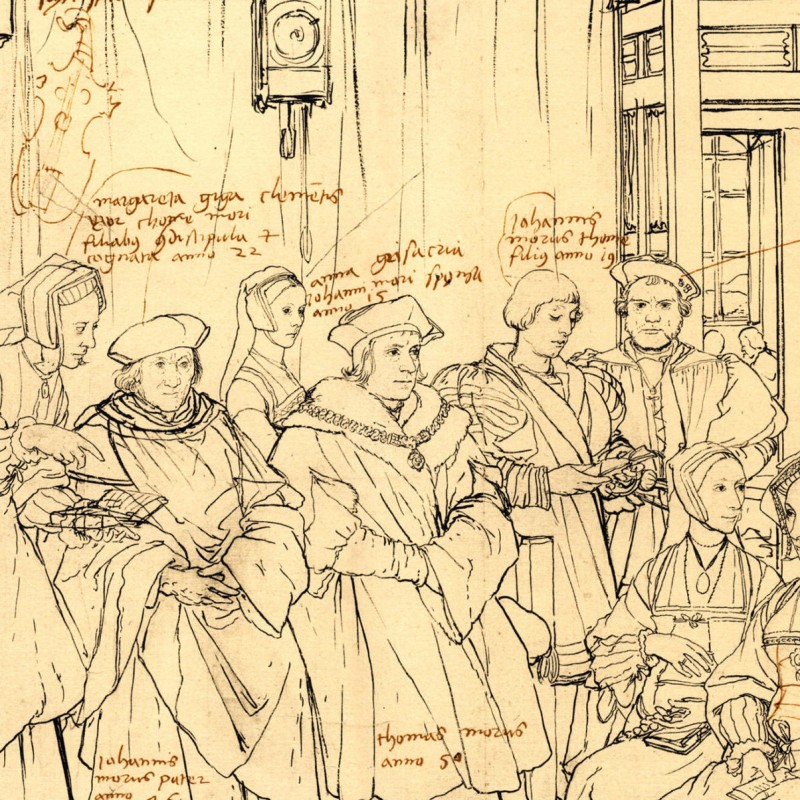 margareta giga clementis
uxor thome mori
filiabus condiscipula et
cognata anno 22
anna grisacria
Johannis mori sponsa
anno 15
Johannis
morus thome
filius anno 19
thomas morus
anno 50
Johannis
morus pater
anno 76